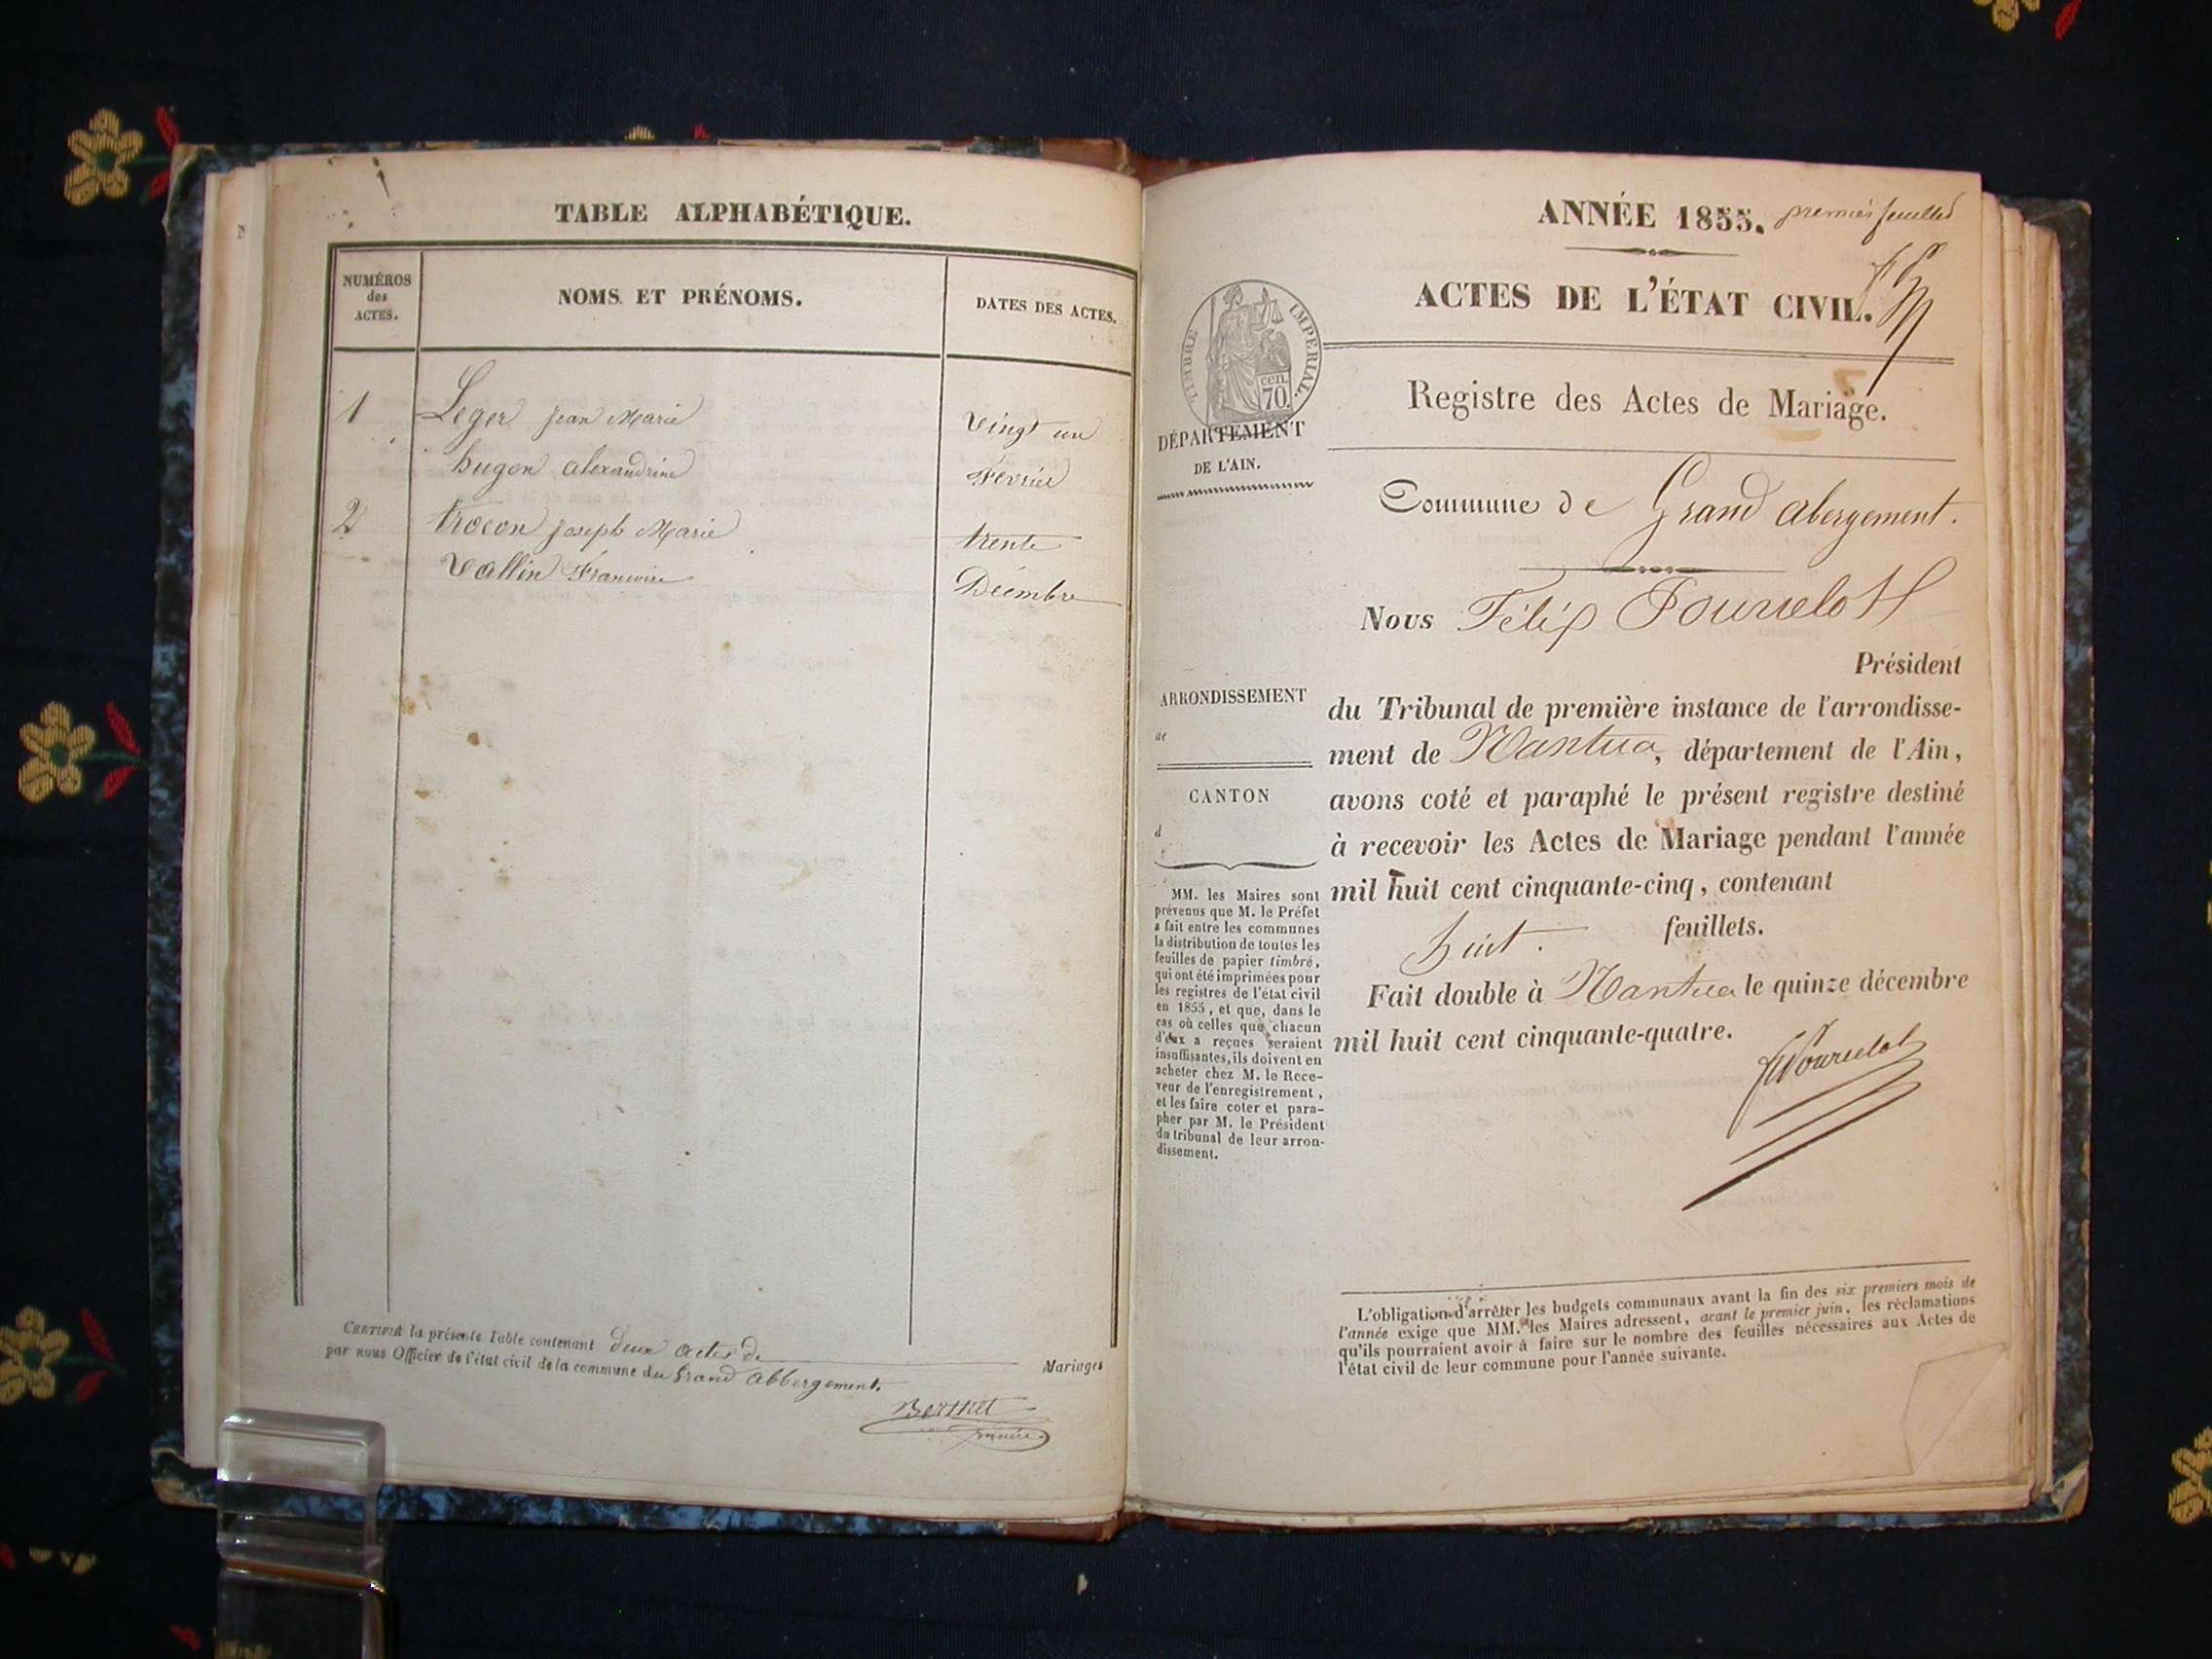 TABLE ALPHABÉTIQUE.
NUMÉROS
des
ACTES.
NOMS ET PRÉNOMS.
DATES DES ACTES.
1 Leger jean Marie vingt un
hugon alexandrine Février
2 trocon joseph Marie trente
Vallin Francoise Décembre
CERTIFIÉ la présente Table contenant deux actes de Mariages
par nous Officier de l'état civil de la commune du Grand abbergement.
Berthet
maire
ANNÉE 1855. premier feuillet
ACTES DE L'ÉTAT CIVIL.
TIMBRE IMPÉRIAL.
cen.
70.
Registre des Actes de Mariage.
DÉPARTEMENT
DE L'AIN.
Commune de Grand abergement.
Nous Félix Pourcelot
Président
ARRONDISSEMENT
de
CANTON
d
du Tribunal de première instance de l'arrondisse-
ment de Nantua, département de l'Ain,
avons coté et paraphé le présent registre destiné
à recevoir les Actes de Mariage pendant l'année
mil huit cent cinquante-cinq, contenant
huit. feuillets.
Fait double à Nantua le quinze décembre
mil huit cent cinquante-quatre.
FPourcelot
MM. les Maires sont
prévenus que M. le Préfet
a fait entre les communes
la distribution de toutes les
feuilles de papier timbré,
qui ont été imprimées pour
les registres de l'état civil
en 1855, et que, dans le
cas où celles que chacun
d'eux a reçues seraient
insuffisantes, ils doivent en
acheter chez M. le Rece-
veur de l'enregistrement,
et les faire coter et para-
pher par M. le Président
du tribunal de leur arron-
dissement.
L'obligation d'arrêter les budgets communaux avant la fin des six premiers mois de
l'année exige que MM. les Maires adressent, avant le premier juin, les réclamations
qu'ils pourraient avoir à faire sur le nombre des feuilles nécessaires aux Actes de
l'état civil de leur commune pour l'année suivante.